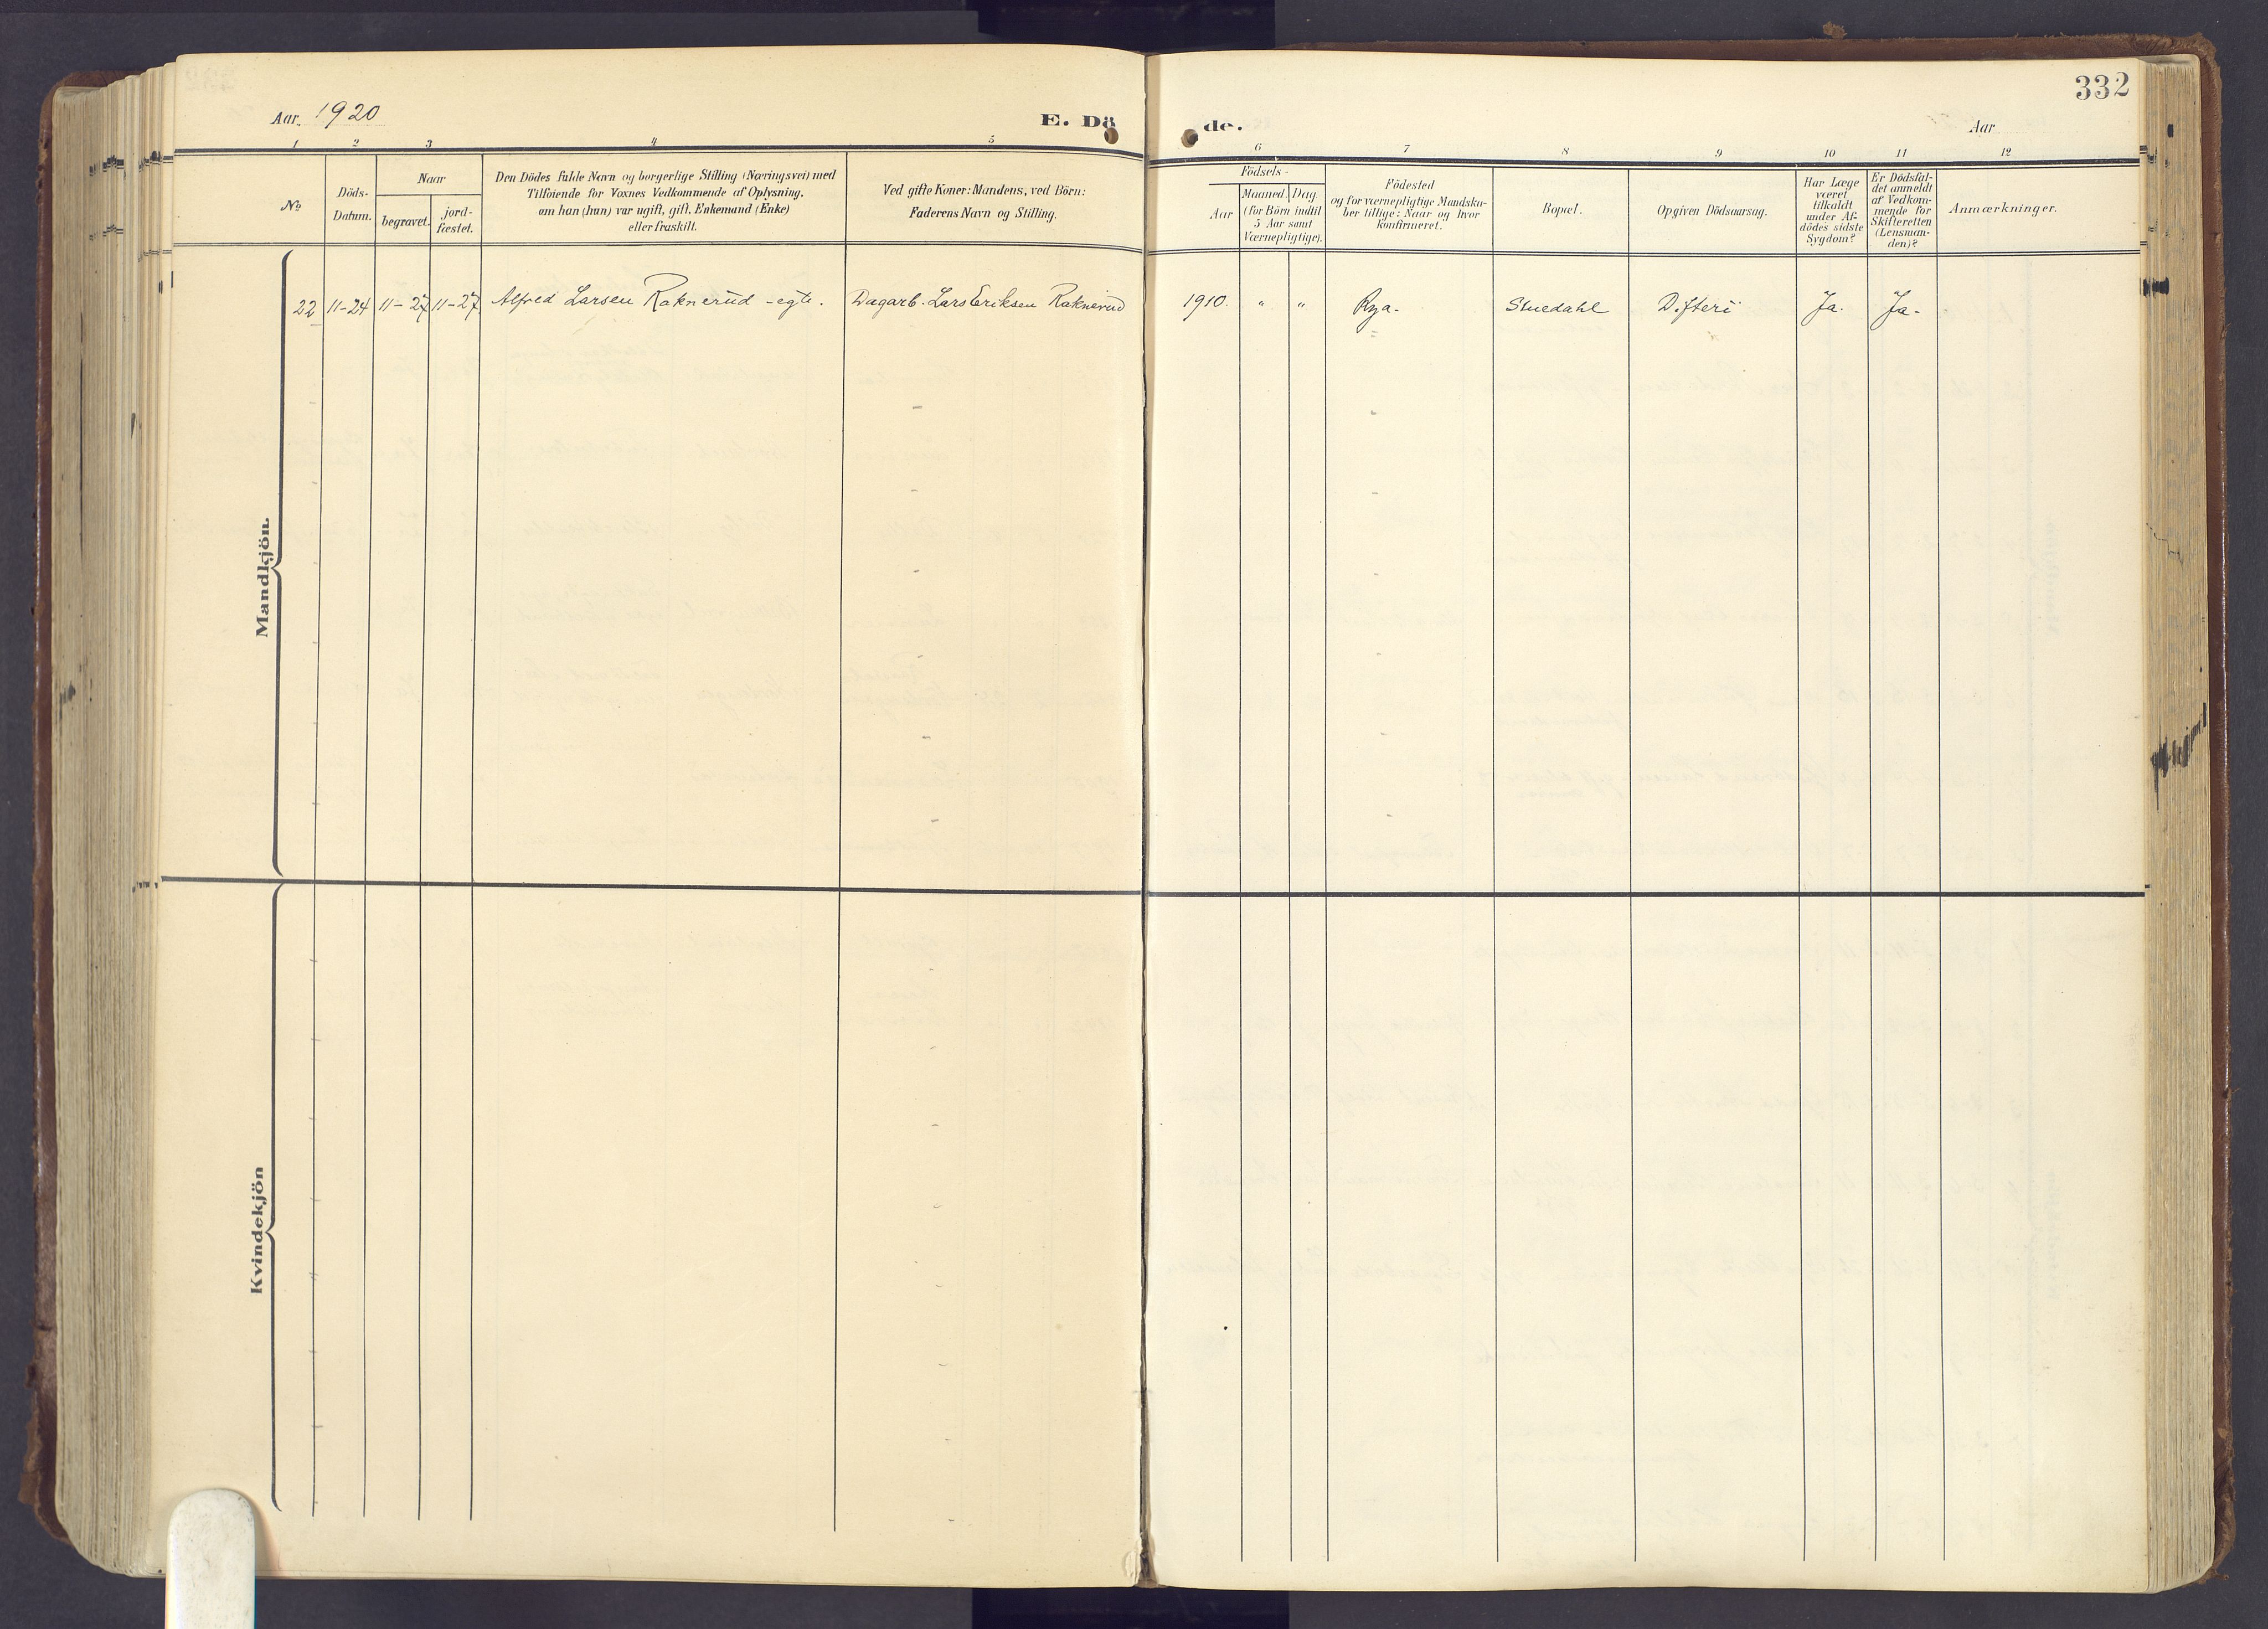 332
Aar 1920
E. Dö
de.
Aar
1 2 3 4 5 6 7 8 9 10 11 12
No
Döds-
Datum.
Naar
begravet.
jord-
fæstet.
Den Dödes fulde Navn og borgerlige Stilling (Næringsvei) med
Tilföiende for Voxnes Vedkommende af Oplysning,
om han (hun) var ugift, gift, Enkemand (Enke)
eller fraskilt.
Ved gifte Koner: Mandens, ved Börn:
Faderens Navn og Stilling.
Födsels-
Aar
Maaned.
Dag.
(for Börn indtil
5 Aar samt
Værnepligtige).
Födested
og for værnepligtige Mandska-
ber tillige: Naar og hvor
konfirmeret.
Bopæl.
Opgiven Dödsaarsag.
Har Læge
været
tilkaldt
under Af-
dödes sidste
Sygdom?
Er Dödsfal-
det anmeldt
af Vedkom-
mende for
Skifteretten
(Lensman-
den)?
Anmærkninger.
Mandkjön.
22 11-24 11-27 11-27 Alfred Larsen Raknerud - egte. Dagarb. Lars Eriksen Raknerud 1910. " " Rya. Stuedahl Difteri Ja. Ja.
Kvindekjön